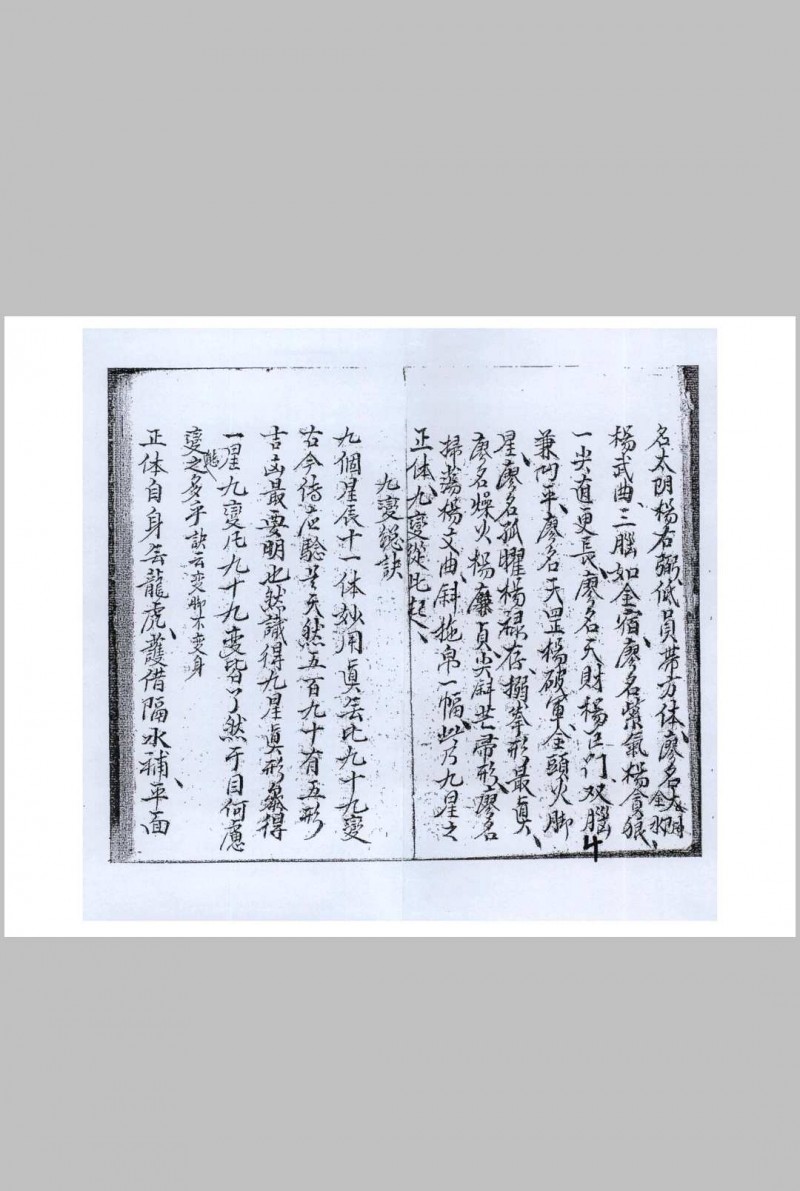 名太阴楊右弼低員帶方体廖名
金水楊武曲三腦如金宿廖名紫氣楊貪狼
一尖直更長廖名天財楊巨门双腦
兼凹平廖名天罡楊破軍金頭火脚
星廖名孤曜楊祿存搊拳形最真
廖名燥火楊廉貞尖斜芒帚形廖名
掃蕩楊文曲斜拖帛一幅此乃九星之
正体九變從此起
九變總訣
九個星辰十一体妙用真无比九十九變
古今傳应騐是天然五百九十有五形
吉凶最要明也然識得九星眞形纔得
一星九變凡九十九變皆了然于目何慮
變態之多乎 訣云变脚不变身
正体自身无龍虎護借隔水補平面
4